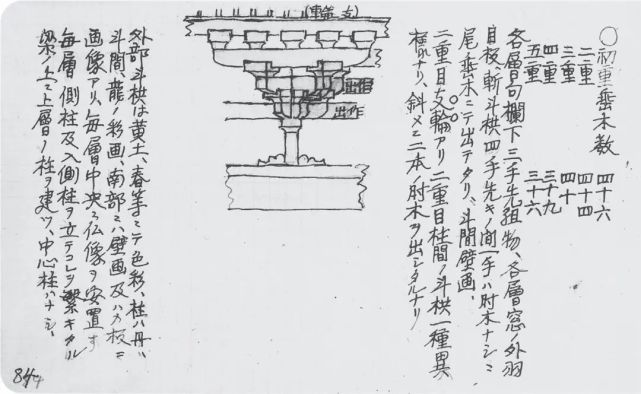 ○初重垂木数 四十六
二重 四十四
三重 四十
四重 三十九
五重 三十六
各層勾欄下三手先組物、各層窓ノ外羽
目板、斬斗栱四手先キノ間一手ハ肘木ナシニ
尾ノ垂木ニテ出テタリ、斗間壁画、
二重目支輪アリ 二重目柱間ノ斗栱一種異
様ナリ、斜メニ二本ノ肘木ヲ出シタルナリ
(軒輪支)
出作
出作
外部斗栱は黄土、春等ニテ色彩、柱ハ丹ハ
斗間、龍ノ彩画、南部ニハ壁画及ハメ板ニ
画像アリ、毎層中央ニ仏像ヲ安置す
毎層側柱及入側柱ヲ立テコレヲ繋キタル
梁ノ上ニ上層ノ柱ヲ建ツ、中心柱ハナシ、
84